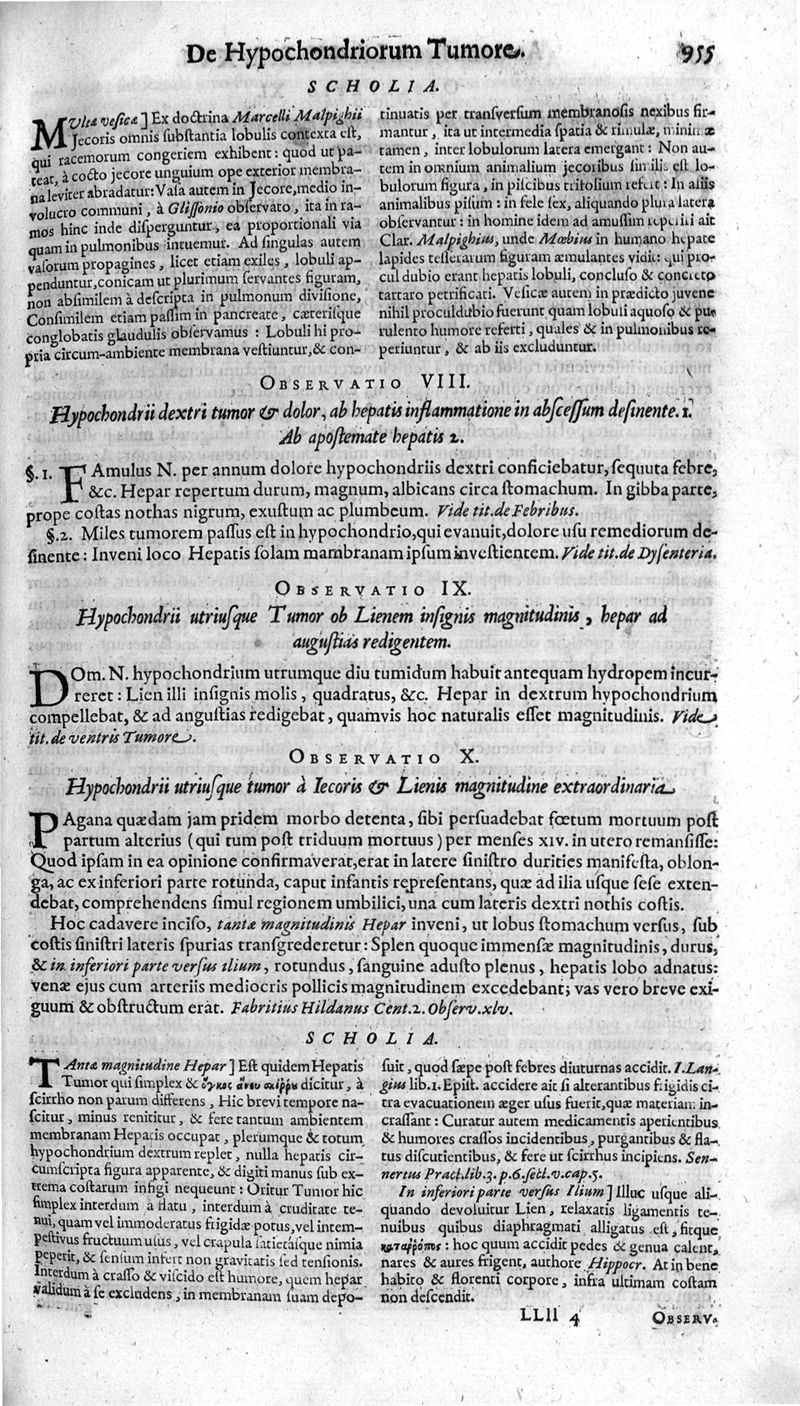 De Hypochondriorum Tumore. 955
SCHOLIA.
MVltæ vesicæ ] Ex doctrina Marcelli Malpighii
Jecoris omnis ſubſtantia lobulis contexta eſt,
qui racemorum congeriem exhibent: quod ut pa-
teat, à cocto jecore unguium ope exterior membra-
na leviter abradatur: Vaſa autem in Jecore, medio in-
volucro communi, à Gliſſonio obſervato, ita in ra-
mos hinc inde diſperguntur, ea proportionali via
quam in pulmonibus intuemur. Ad ſingulas autem
vaſorum propagines, licet etiam exiles, lobuli ap-
penduntur, conicam ut plurimum ſervantes figuram,
non abſimilem à deſcripta in pulmonum diviſione,
Conſimilem etiam paſſim in pancreate, cæteriſque
conglobatis glaudulis obſervamus: Lobuli hi pro-
pria circum-ambiente membrana veſtiuntur, & con-
tinuatis per tranſverſum membranoſis nexibus fir-
mantur, ita ut intermedia ſpatia & rimulæ, minimæ
tamen, inter lobulorum latera emergant: Non au-
tem in omnium animalium jecoribus ſimilis eſt lo-
bulorum figura, in piſcibus tritolium refert: In aliis
animalibus piſum: in fele ſex, aliquando plura latera
obſervantur: in homine idem ad amuſſim reperiri ait
Clar. Malpighius, unde Mœbius in humano hepate
lapides teſſerarum figuram æmulantes vidit: qui pro-
cul dubio erant hepatis lobuli, concluſo & concreto
tartaro petrificati. Veſicæ autem in prædicto juvene
nihil proculdubio fuerunt quam lobuli aquoſo & pu-
rulento humore referti, quales & in pulmonibus re-
periuntur, & ab iis excluduntur.
OBSERVATIO VIII.
Hypochondrii dextri tumor & dolor, ab hepatis inflammatione in abſceſſum deſinente. 1.
Ab apoſtemate hepatis 2.
§. 1. FAmulus N. per annum dolore hypochondriis dextri conficiebatur, ſequuta febre,
&c. Hepar repertum durum, magnum, albicans circa ſtomachum. In gibba parte,
prope coſtas nothas nigrum, exuſtum ac plumbeum. Vide tit. de Febribus.
§. 2. Miles tumorem paſſus eſt in hypochondrio, qui evanuit, dolore uſu remediorum de-
ſinente: Inveni loco Hepatis ſolam mambranam ipſum inveſtientem. Vide tit. de Dyſenteria.
OBSERVATIO IX.
Hypochondrii utriuſque Tumor ob Lienem inſignis magnitudinis, hepar ad
auguſtias redigentem.
DOm. N. hypochondrium utrumque diu tumidum habuit antequam hydropem incur-
reret: Lien illi inſignis molis, quadratus, &c. Hepar in dextrum hypochondrium
compellebat, & ad anguſtias redigebat, quamvis hoc naturalis eſſet magnitudinis. Vide
tit. de ventris Tumore.
OBSERVATIO X.
Hypochondrii utriuſque tumor à Iecoris & Lienis magnitudine extraordinaria
PAgana quædam jam pridem morbo detenta, ſibi perſuadebat fœtum mortuum poſt
partum alterius (qui tum poſt triduum mortuus) per menſes XIV. in utero remanſiſſe:
Quod ipſam in ea opinione confirmaverat, erat in latere ſiniſtro durities manifeſta, oblon-
ga, ac ex inferiori parte rotunda, caput infantis repreſentans, quæ ad ilia uſque ſeſe exten-
debat, comprehendens ſimul regionem umbilici, una cum lateris dextri nothis coſtis.
Hoc cadavere inciſo, tantæ magnitudinis Hepar inveni, ut lobus ſtomachum verſus, ſub
coſtis ſiniſtri lateris ſpurias tranſgrederetur: Splen quoque immenſæ magnitudinis, durus,
& in inferiori parte verſus ilium, rotundus, ſanguine aduſto plenus, hepatis lobo adnatus:
venæ ejus cum arteriis mediocris pollicis magnitudinem excedebant; vas vero breve exi-
guum & obſtructum erat. Fabritius Hildanus Cent. 2. Obſerv. xlv.
SCHOLIA.
TAntæ magnitudine Hepar ] Eſt quidem Hepatis
Tumor qui ſimplex & ὄγκος ἄνευ σκίρρου dicitur, à
ſcirrho non parum differens, Hic brevi tempore na-
ſcitur, minus renititur, & fere tantum ambientem
membranam Hepatis occupat, plerumque & totum
hypochondrium dextrum replet, nulla hepatis cir-
cumſcripta figura apparente, & digiti manus ſub ex-
trema coſtarum infigi nequeunt: Oritur Tumor hic
ſimplex interdum à flatu, interdum à cruditate te-
nui, quam vel immoderatus frigidæ potus, vel intem-
peſtivus fructuum uſus, vel crapula ſatietáſque nimia
peperit, & ſenſum infert non gravitatis ſed tenſionis.
Interdum à craſſo & viſcido eſt humore, quem hepar
validum à ſe excludens, in membranam ſuam depo-
ſuit, quod ſæpe poſt febres diuturnas accidit. I. Lan-
gius lib. 1. Epiſt. accidere ait ſi alterantibus frigidis ci-
tra evacuationem æger uſus fuerit, quæ materiam in-
craſſant: Curatur autem medicamentis aperientibus
& humores craſſos incidentibus, purgantibus & fla-
tus diſcutientibus, & fere ut ſcirrhus incipiens. Sen-
nertus Pract. lib. 3. p. 6. ſect. v. cap. 5.
In inferiori parte verſus Ilium ] Illuc uſque ali-
quando devoluitur Lien, relaxatis ligamentis te-
nuibus quibus diaphragmati alligatus eſt, fitque
καταρρόπος: hoc quum accidit pedes & genua calent,
nares & aures frigent, authore Hippocr. At in bene
habito & florenti corpore, infra ultimam coſtam
non deſcendit.
LLll 4 OBSERV.